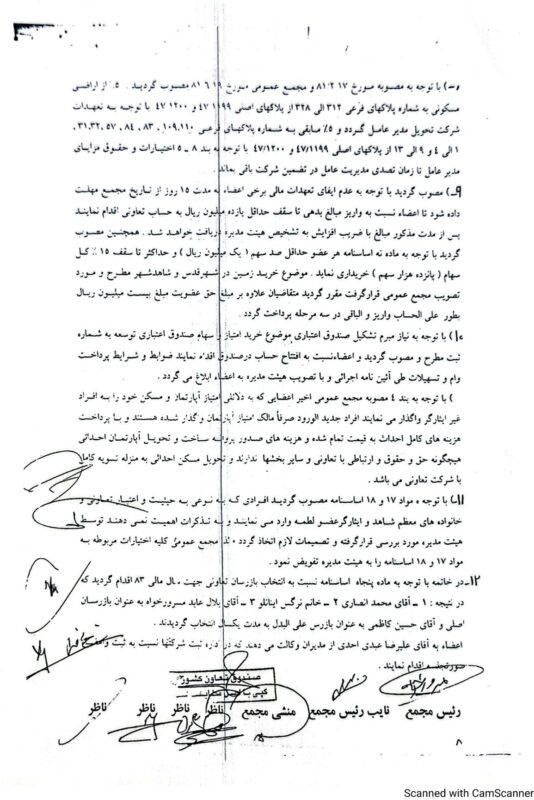 با توجه به مصوبه مورخ ۸۱/۲/۱۷ و مجمع عمومی مورخ ۸۱/۶/۱۹ مصوب گردید . ۵٪ از اراضی
مسکونی به شماره پلاکهای فرعی ۳۱۲ الی ۳۲۸ از پلاکهای اصلی ۴۷/۱۱۹۹ و ۴۷/۱۲۰۰ با توجه به تعهدات
شرکت تحویل مدیر عامل گردد و ۵٪ مابقی به شماره پلاکهای فرعی ۱۰۹،۱۱۰ ، ۸۳ ، ۸۴ ، ۵۷ ،۳۱،۳۲
۱ الی ۴ و ۹ الی ۱۳ از پلاکهای اصلی ۴۷/۱۱۹۹ و ۴۷/۱۲۰۰ با توجه به بند ۸ ـ ۵ اختیارات و حقوق مزایای
مدیر عامل تا زمان تصدی مدیریت عامل در تضمین شرکت باقی بماند .
۹ـ) مصوب گردید با توجه به عدم ایفای تعهدات مالی برخی اعضاء به مدت ۱۵ روز از تاریخ مجمع مهلت
داده شود تا اعضاء نسبت به واریز مبالغ بدهی تا سقف حداقل یازده میلیون ریال به حساب تعاونی اقدام نمایند
پس از مدت مذکور مبالغ با ضریب افزایش به تشخیص هیئت مدیره دریافت خواهد شد . همچنین مصوب
گردید با توجه به ماده نه اساسنامه هر عضو حداقل صد سهم ( یک میلیون ریال ) و حداکثر تا سقف ۱۵ ٪ کل
سهام ( پانزده هزار سهم ) خریداری نماید . موضوع خرید زمین در شهرقدس و شاهدشهر مطرح و مورد
تصویب مجمع عمومی قرارگرفت مقرر گردید متقاضیان علاوه بر مبلغ حق عضویت مبلغ بیست میلیون ریال
بطور علی الحساب واریز و الباقی در سه مرحله پرداخت گردد .
۱۰) با توجه به نیاز مبرم تشکیل صندوق اعتباری موضوع خرید امتیاز و سهام صندوق اعتباری توسعه به شماره
ثبت مطرح و مصوب گردید و اعضاءنسبت به افتتاح حساب درصندوق اقدام نمایند ضوابط و شرایط پرداخت
وام و تسهیلات طی آئین نامه اجرائی و با تصویب هیئت مدیره به اعضاء ابلاغ می گردد .
) با توجه به بند ۴ مصوبه مجمع عمومی اخیر اعضایی که به دلائلی امتیاز آپارتمان و مسکن خود را به افراد
غیر ایثارگر واگذار می نمایند افراد جدید الورود صرفاً مالک امتیاز آپارتمان واگذار شده هستند و با پرداخت
هزینه های کامل احداث به قیمت تمام شده و هزینه های صدور پروانه ساخت و تحویل آپارتمان احداثی
هیچگونه حق و حقوق و ارتباطی با تعاونی و سایر بخشها ندارند و تحویل مسکن احداثی به منزله تسویه کامل
با شرکت تعاونی می باشد .
۱۱ـ) با توجه ه مواد ۱۷ و ۱۸ اساسنامه مصوب گردید افرادی که به نوعی به حیثیت و اعتبار تعاونی و
خانواده های معظم شاهد و ایثارگرعضو لطمه وارد می نمایند و به تذکرات اهمیت نمی دهند توسط
هیئت مدیره مورد بررسی قرارگرفته و تصمیمات لازم اتخاذ گردد مجمع عمومی کلیه اختیارات مربوطه به
مواد ۱۷ و ۱۸ اساسنامه را به هیئت مدیره تفویض نمود .
۱۲ـ در خاتمه با توجه به ماده پنجاه اساسنامه نسبت به انتخاب بازرسان تعاونی جهت سال مالی ۸۳ اقدام گردید که
در نتیجه : ۱ ـ آقای محمد انصاری ۲ ـ خانم نرگس اینانلو ۳ ـ آقای بلال عابد مسرورخواه به عنوان بازرسان
اصلی و آقای حسین کاظمی به عنوان بازرس علی البدل به مدت یکسال انتخاب گردیدند .
اعضاء به آقای علیرضا عبدی احدی از مدیران وکالت می دهند که در اداره ثبت شرکتها نسبت به ثبت
صورتجلسه اقدام نمایند .
صندوق تعاون کشور
رئیس مجمع نایب رئیس مجمع منشی مجمع ناظر ناظر ناظر ناظر
۸
Scanned with CamScanner